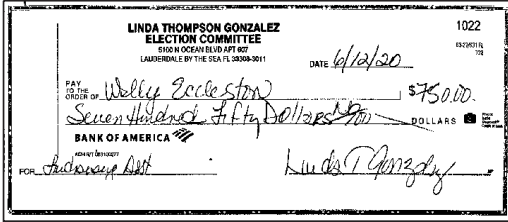 LINDA THOMPSON GONZALEZ
ELECTION COMMITTEE
5100 N OCEAN BLVD APT 607
LAUDERDALE BY THE SEA FL 33308-3011
1022
DATE 6/12/20
PAY
TO THE
ORDER OF Wally Eccleston $750.00
Seven Hundred Fifty Dollars No/100 DOLLARS
BANK OF AMERICA
FOR
Linda T Gonzalez